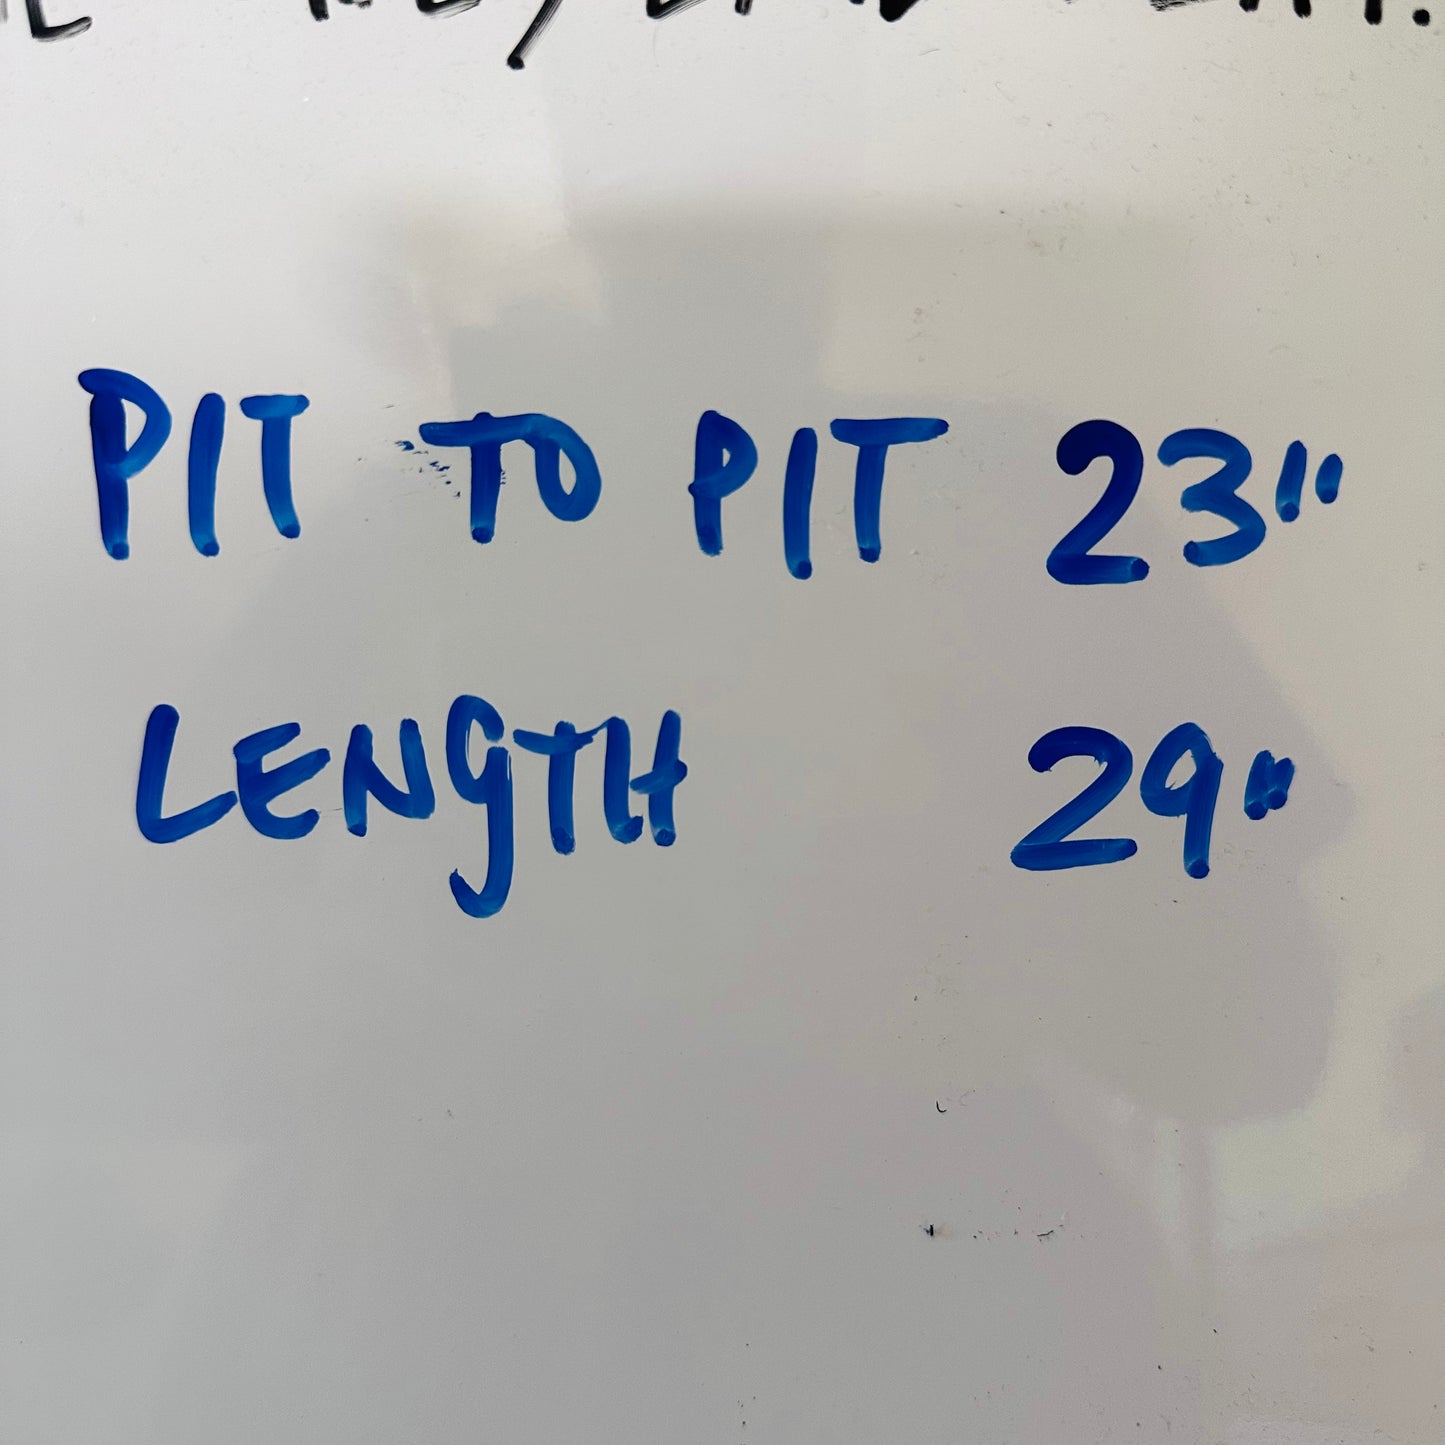 PIT TO PIT 23"
LENGTH 29"